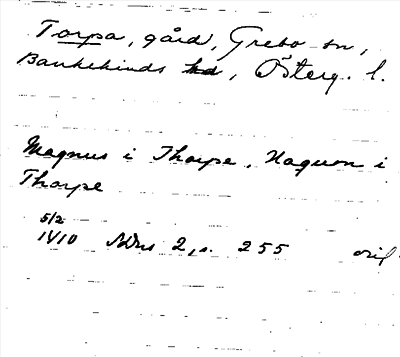 Torpa, gård, Grebo sn,
Bankekinds hd, Österg. l.
Magnus i Thorpe, Haquon i
Thorpe
5/2
1410 SDns 2, s. 255 orig